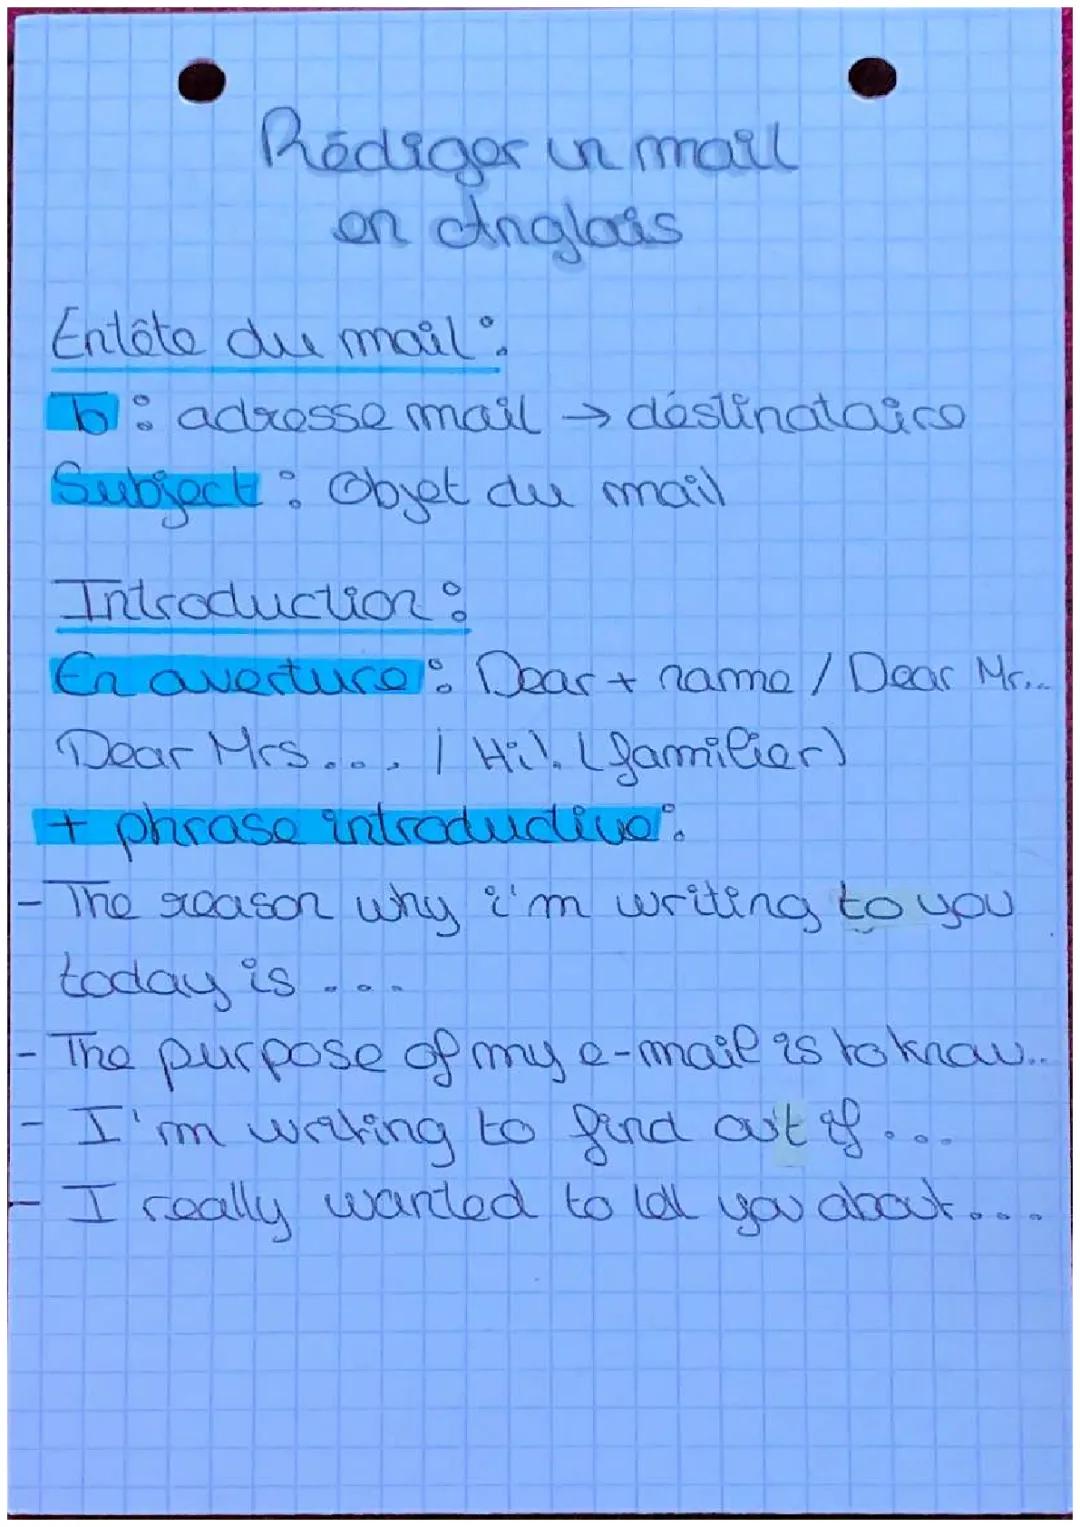 Rédiger un mail
en Anglais
Entête du mail :
To : adresse mail → déstinataire
Subject : Objet du mail
Introduction :
En averture : Dear + name / Dear Mr...
Dear Mrs.... / Hi! (familier)
+ phrase introductive :
- The reason why i'm writing to you
today is ...
- The purpose of my e-mail is to know...
- I'm writing to find out if ...
- I really wanted to tell you about....